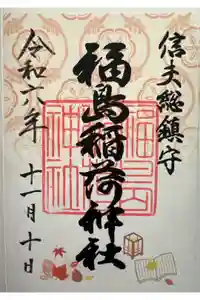 信夫総鎮守
福島稲荷神社
令和六年
十一月十日